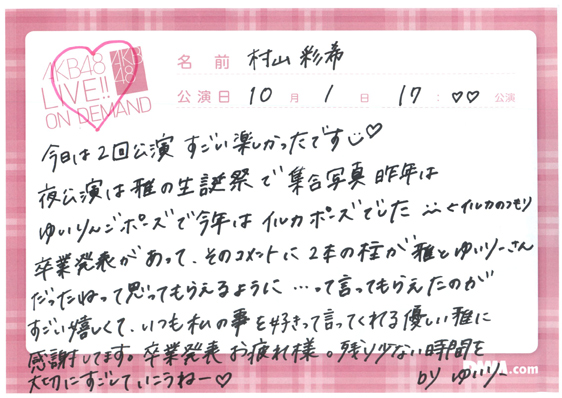 AKB48
LIVE!!
ON DEMAND
AKB
48
名前 村山彩希
公演日 10月 1日 17:♡♡公演
今日は2回公演 すごい楽しかったです♡
夜公演は雅の生誕祭で集合写真 昨年は
ゆいりんごポーズで今年は イルカポーズでした ←イルカのつもり
卒業発表があって、そのコメントに 2本の柱が雅とゆいりーさん
だったねって思ってもらえるように…って言ってもらえたのが
すごい嬉しくて、いつも私の事を好きって言ってくれる優しい雅に
感謝してます。卒業発表 お疲れ様。残り少ない時間を
大切にすごしていこうねー♡ by ゆいりー
.com